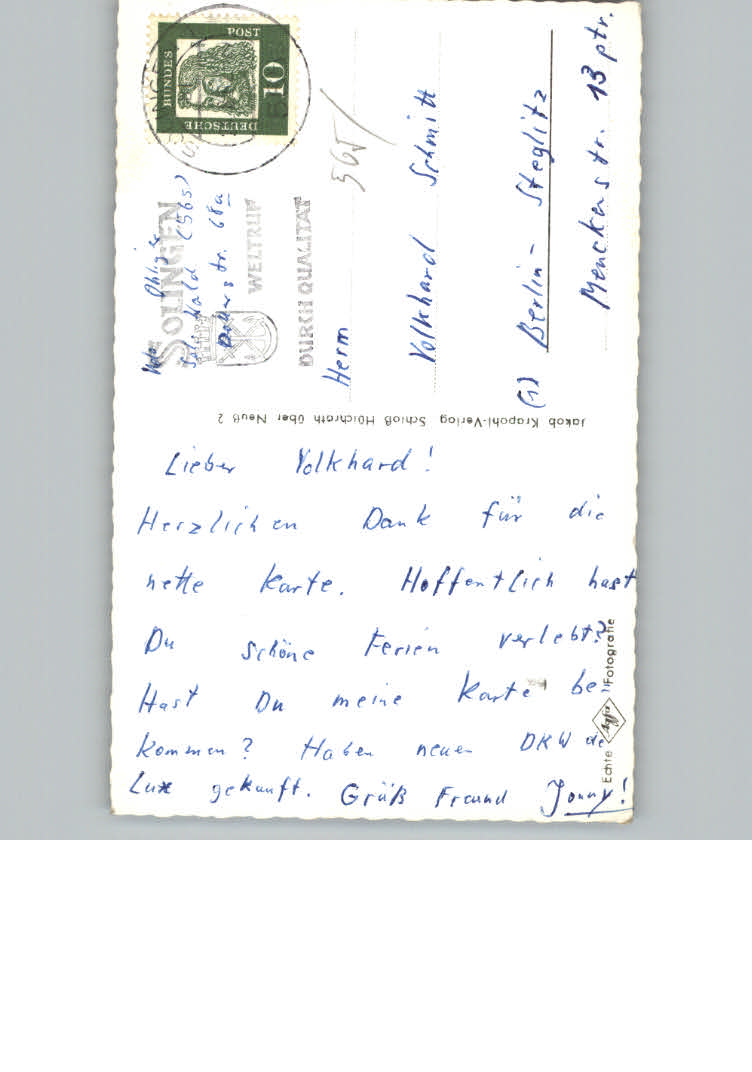 DEUTSCHE
BUNDES
POST
10
SOLINGEN
WELTRUF
DURCH QUALITÄT
(565)
68a
565
Herrn
Volkhard Schmitt
(1) Berlin - Steglitz
Menckenstr. 13 ptr.
Jakob Krapohl-Verlag Schloß Hülchrath über Neuß 2
Lieber Volkhard!
Herzlichen Dank für die
nette Karte. Hoffentlich hast
Du schöne Ferien verlebt?
Hast Du meine Karte be-
kommen? Haben neuen DKW de
Lux gekauft. Grüß Freund Jonny!
Echte Agfa Fotografie